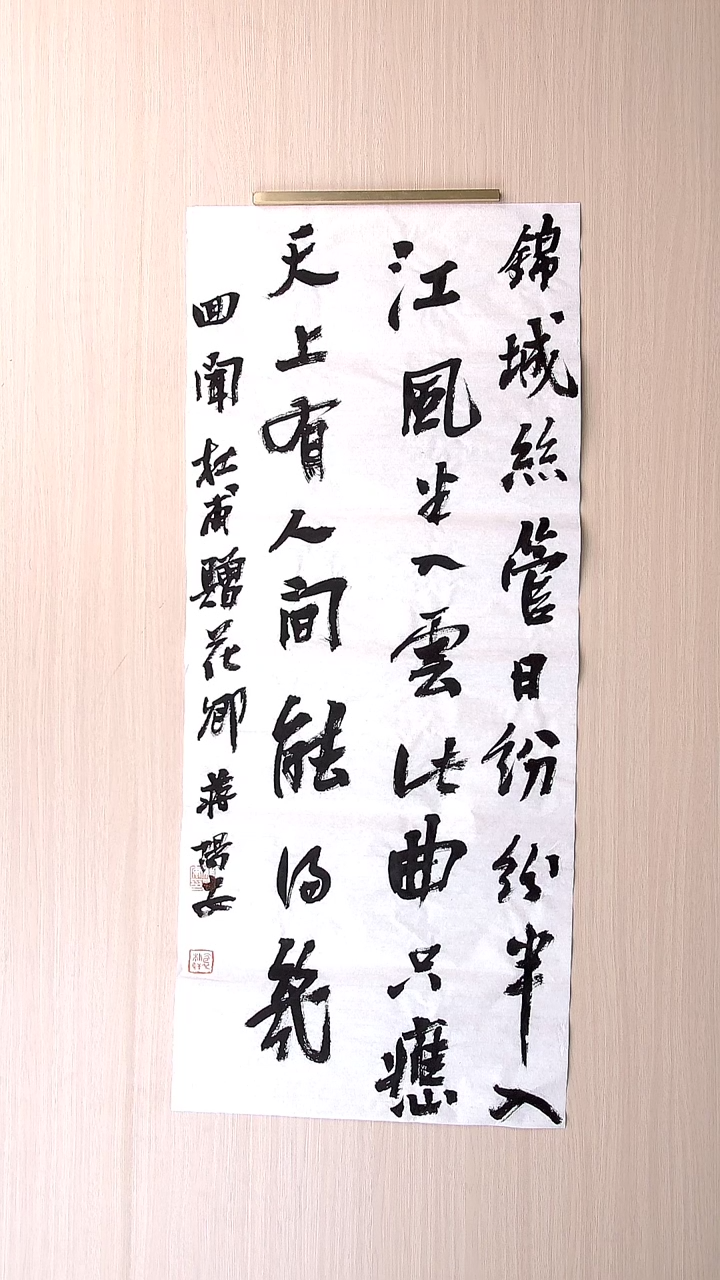 錦城絲管日紛紛半入
江風半入雲此曲只應
天上有人間能得幾
回聞 杜甫贈花卿 蔣陽